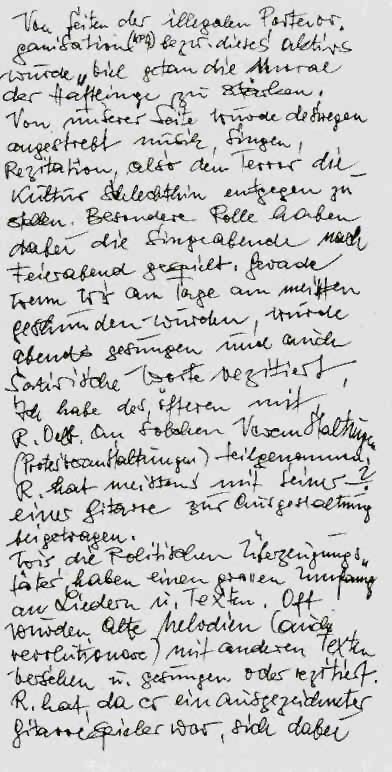 Von Seiten der illegalen Parteior-
ganisation (KPD) bezw. dieses Aktivs
wurde viel getan die Moral
der Häftlinge zu stärken.
Von unserer Seite wurde deswegen
angestrebt Musik, Singen,
Rezitation, also dem Terror die
Kultur schlechthin entgegen zu
stellen. Besondere Rolle haben
dabei die Singeabende nach
Feierabend gespielt. Gerade
wenn wir am Tage am meisten
geschunden wurden, wurde
abends gesungen und auch
Satirische Worte rezitiert,
Ich habe des öfteren mit
R. an solchen Veranstaltungen
(Protestveranstaltungen) teilgenommen.
R. hat meistens mit seiner ?
einer Gitarre zur Ausgestaltung
beigetragen.
Wir die Politischen Überzeugungs„
täter haben einen graven Umfang
an Liedern u. Texten. Oft
wurden alte Melodien (auch
revolutionäre) mit anderen Texten
versehen u. gesungen oder rezitiert.
R. hat, da er ein ausgezeichneter
Gitarrespieler war, sich dabei